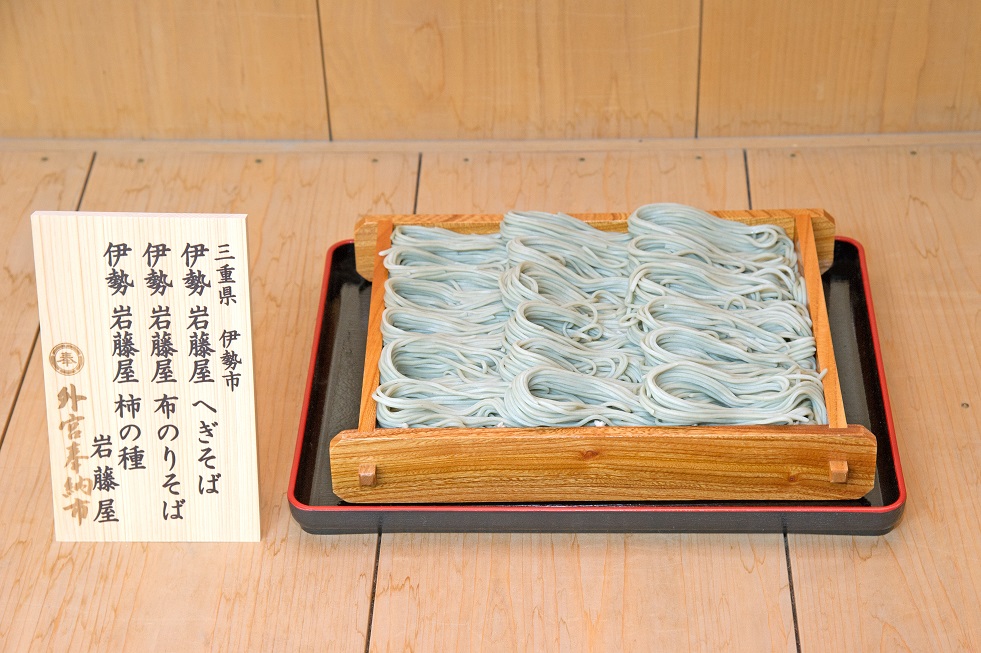 三重県 伊勢市
伊勢 岩藤屋 へぎそば
伊勢 岩藤屋 布のりそば
伊勢 岩藤屋 柿の種
岩藤屋
外宮奉納市